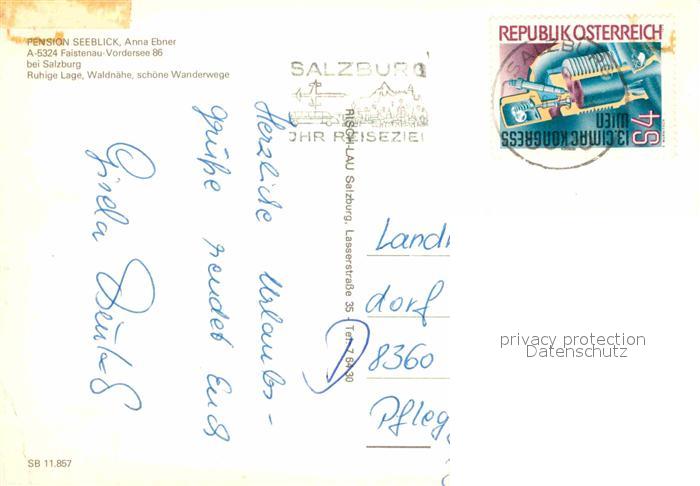 PENSION SEEBLICK, Anna Ebner
A-5324 Faistenau-Vordersee 86
bei Salzburg
Ruhige Lage, Waldnähe, schöne Wanderwege
SALZBURG
IHR REISEZIEL
REPUBLIK ÖSTERREICH
13. CIMAC KONGRESS
WIEN
S4
SALZBURG
Herzliche Urlaubs-
grüße sendet Euch
Gisela
RISCHLAU Salzburg, Lasserstraße 35 - Tel. 7 64 30
Landk
dorf
8360
Pfleg
privacy protection
Datenschutz
SB 11.857